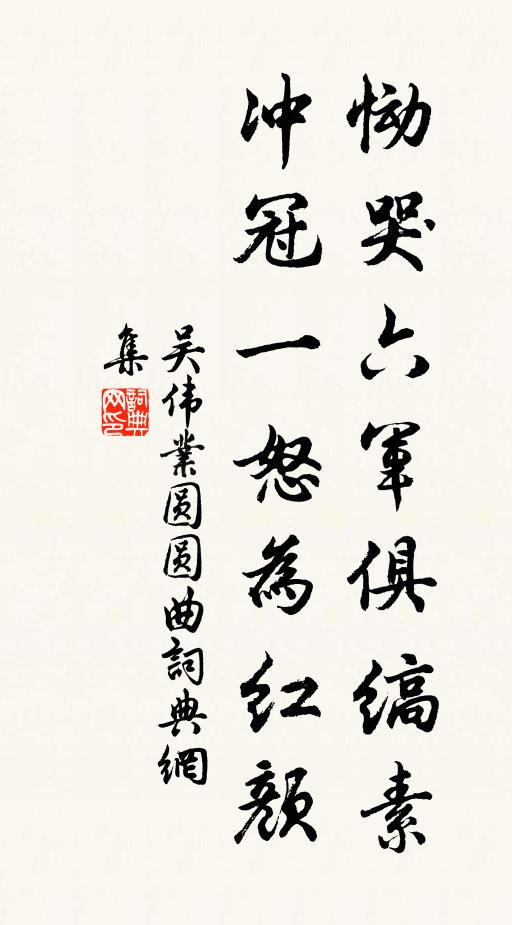 慟哭六軍俱縞素
冲冠一怒為紅顏
吴伟業圆圆曲詞典網
集
詞典
网印